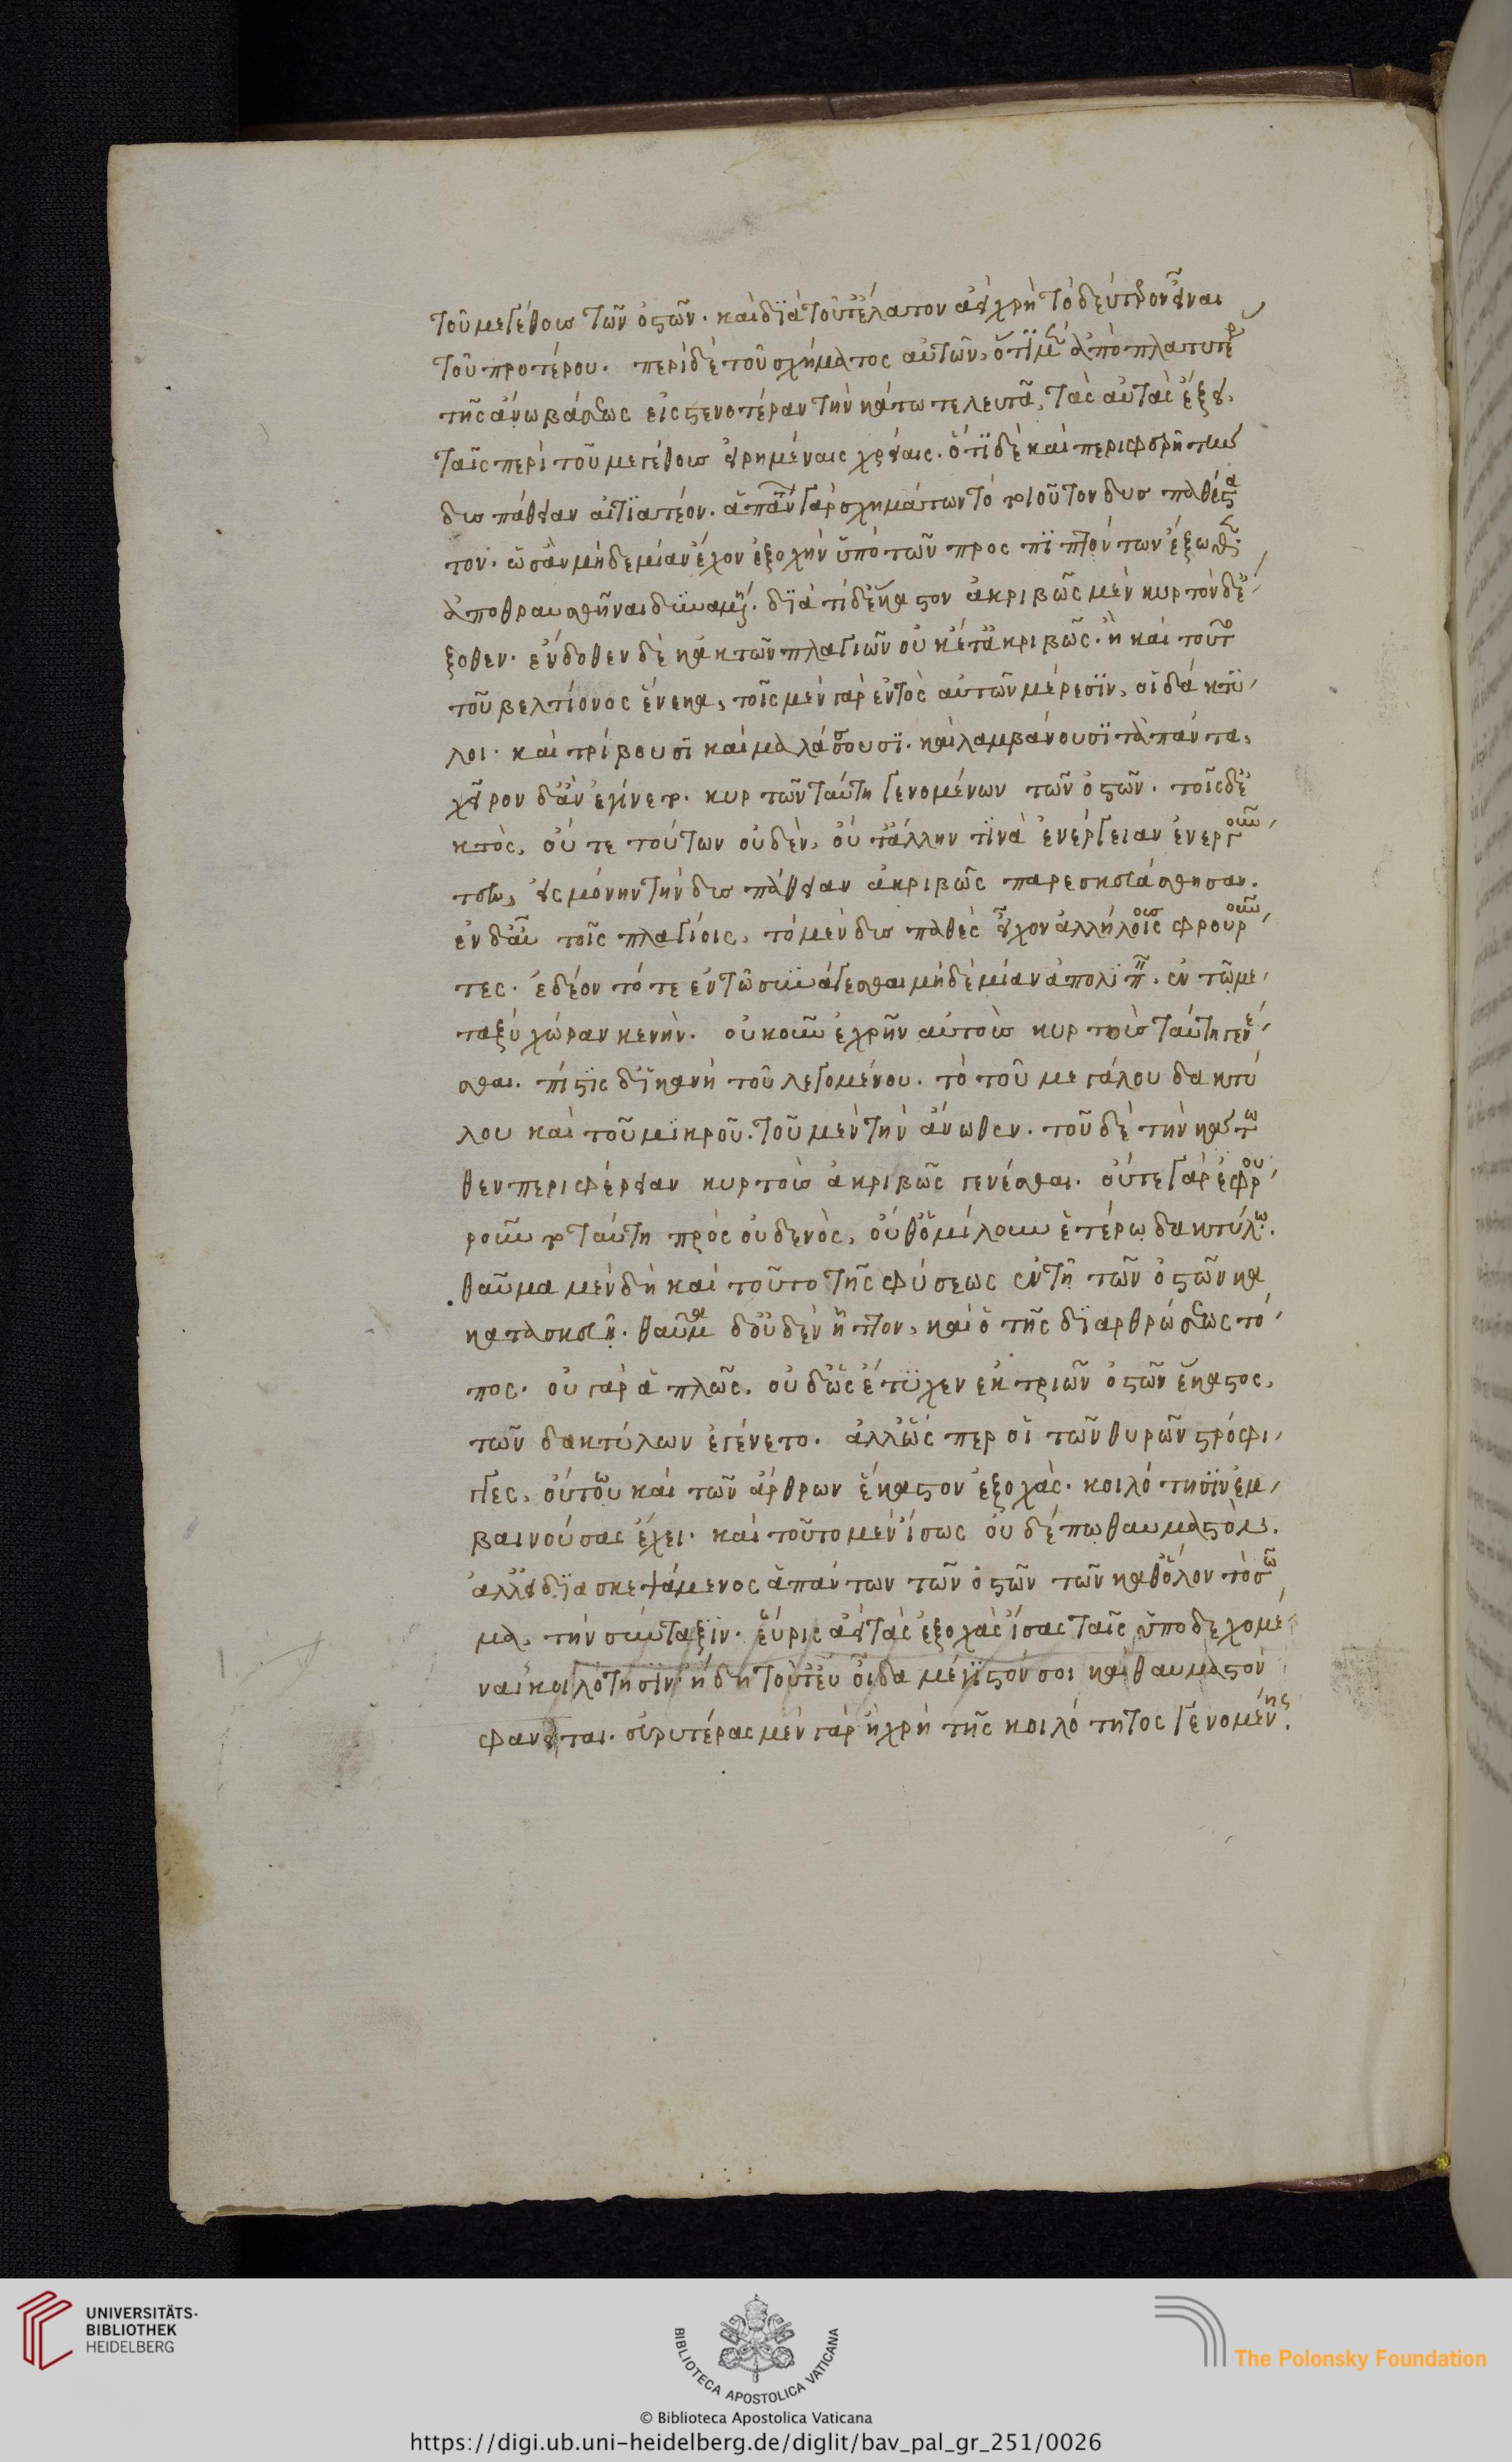 τοῦ μεγέθους τῶν ὀστῶν. καὶ διὰ τοῦτ' ἔλαττον ἀεὶ χρὴ τὸ δεύτερον εἶναι
τοῦ προτέρου. περὶ δὲ τοῦ σχήματος αὐτῶν, ὅτι μὲν ἀπὸ πλατυτέρ
τῆς ἄνω βάσεως εἰς στενοτέραν τὴν κάτω τελευτᾶ, τὰς αὐτὰς ἕξει,
ταῖς περὶ τοῦ μεγέθους εἰρημέναις χρείαις. ὅτι δὲ καὶ περιφερῆ τὴν
δυσπάθειαν αἰτιατέον. ἁπάντων γὰρ σχημάτων τὸ τοιοῦτον δυσπαθέστα
τον. ὡς ἂν μηδεμίαν ἔχον ἐξοχὴν ὑπὸ τῶν προσπιπτόντων ἔξωθεν.
ἀποθραυσθῆναι δυναμένην. διὰ τί δ' ἕκαστον ἀκριβῶς μὲν κυρτὸν δ' ἔ
ξοθεν. ἔνδοθεν δὲ κἀκ τῶν πλαγιῶν οὐκέτ' ἀκριβῶς. ἢ καὶ τοῦτο
τοῦ βελτίονος ἕνεκα, τοῖς μὲν γὰρ ἐντὸς αὐτῶν μέρεσιν, οἱ δάκτυ
λοι. καὶ τρίβουσι καὶ μαλάσσουσι. καὶ λαμβάνουσι τὰ πάντα,
χεῖρον δ' ἂν ἐγίνετο. κυρτῶν ταύτη γενομένων τῶν ὀστῶν. τοῖς δ' ἐ
κτὸς, οὔτε τούτων οὐδὲν, οὔτ' ἄλλην τινὰ ἐνέργειαν ἐνεργοῦν
τες, εἰς μόνην τὴν δυσπάθειαν ἀκριβῶς παρεσκευάσθησαν.
ἐν δ' αὖ τοῖς πλαγίοις, τὸ μὲν δυσπαθὲς εἶχον ἀλλήλους φρουροῦν
τες. ἔδεον τό τε ἐν τῶ συνάγεσθαι μηδεμίαν ἀπολιπεῖν. ἐν τῶ με
ταξὺ χώραν κενήν. οὐκοῦν ἐχρῆν αὐτοὺς κυρτοὺς ταύτη γενέ
σθαι. πίστις δ' ἱκανὴ τοῦ λεγομένου. τὸ τοῦ μεγάλου δακτύ
λου καὶ τοῦ μικροῦ. τοῦ μὲν τὴν ἄνωθεν. τοῦ δὲ τὴν κάτω
θεν περιφέρειαν κυρτοὺς ἀκριβῶς γενέσθαι. οὔτε γὰρ ἐφρου
ροῦντο ταύτη πρὸς οὐδενὸς, οὔθ' ὁμίλουν ἑτέρω δακτύλω.
θαῦμα μὲν δὴ καὶ τοῦτο τῆς φύσεως ἐν τῆ τῶν ὀστῶν κα
κατασκευῆ. θαῦμα δ' οὐδὲν ἧττον, καὶ ὁ τῆς διαρθρώσεως τό
πος. οὐ γὰρ ἁπλῶς. οὐδ' ὡς ἔτυχεν ἐκ τριῶν ὀστῶν ἕκαστος,
τῶν δακτύλων ἐγένετο. ἀλλ' ὥσπερ οἱ τῶν θυρῶν στρόφι
γγες, οὕτω καὶ τῶν ἄρθρων ἕκαστον ἐξοχὰς. κοιλότησιν ἐμ
βαινούσας ἔχει. καὶ τοῦτο μὲν ἴσως οὐδέπω θαυμαστὸν.
ἀλλ' εἰ διασκεψάμενος ἁπάντων τῶν ὀστῶν τῶν καθ' ὅλον τὸ σῶ
μα, τὴν σύνταξιν. εὕροις ἀεὶ τὰς ἐξοχὰς ἴσας ταῖς ὑποδεχομέ
ναι κοιλότησιν. ἤδη τοῦτ' εὖ οἶδα μέγιστόν σοι καὶ θαυμαστὸν
φανεῖται. εὐρυτέρας μὲν γὰρ ἢ χρὴ τῆς κοιλότητος γενομένης.
UNIVERSITÄTS-
BIBLIOTHEK
HEIDELBERG
BIBLIOTECA APOSTOLICA VATICANA
The Polonsky Foundation
© Biblioteca Apostolica Vaticana
https://digi.ub.uni-heidelberg.de/diglit/bav_pal_gr_251/0026